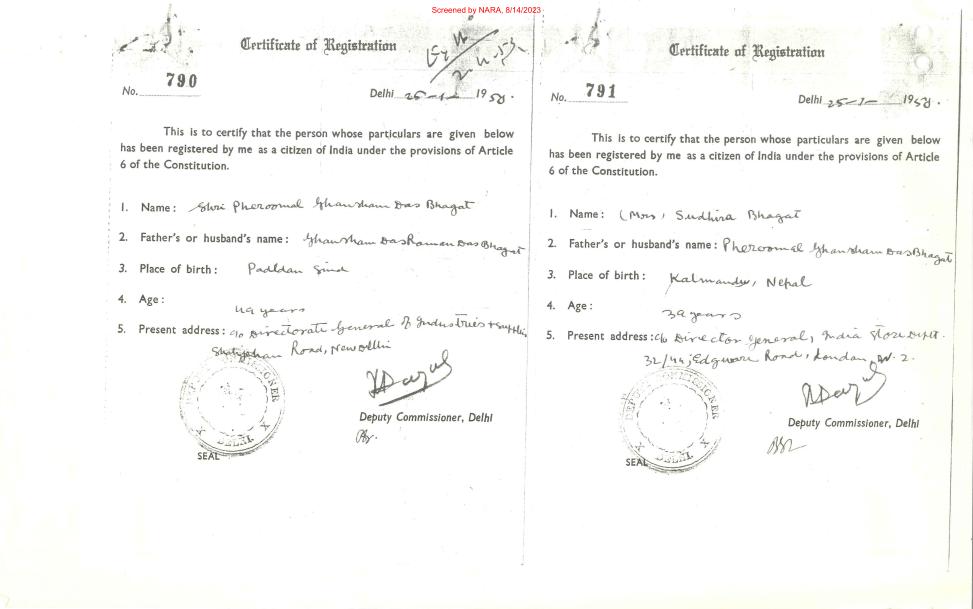 Screened by NARA, 8/14/2023
Certificate of Registration
No. 790
Delhi 25-1- 1950.
This is to certify that the person whose particulars are given below
has been registered by me as a citizen of India under the provisions of Article
6 of the Constitution.
1. Name: Shri Pheroomal Ghansham Das Bhagat
2. Father's or husband's name: Ghansham Das Raman Das Bhagat
3. Place of birth: Padidan Sind
4. Age: 49 years
5. Present address: c/o Directorate General of Industries & Supplies
Shahjahan Road, New Delhi
DEPUTY COMMISSIONER
DELHI
Deputy Commissioner, Delhi
SEAL
Certificate of Registration
No. 791
Delhi 25-1- 1950.
This is to certify that the person whose particulars are given below
has been registered by me as a citizen of India under the provisions of Article
6 of the Constitution.
1. Name: (Mrs) Sudhira Bhagat
2. Father's or husband's name: Pheroomal Ghansham Das Bhagat
3. Place of birth: Katmandu, Nepal
4. Age: 39 years
5. Present address: c/o Director General, India Store Deptt.
32/44, Edgware Road, London, W. 2.
DEPUTY COMMISSIONER
DELHI
Deputy Commissioner, Delhi
SEAL